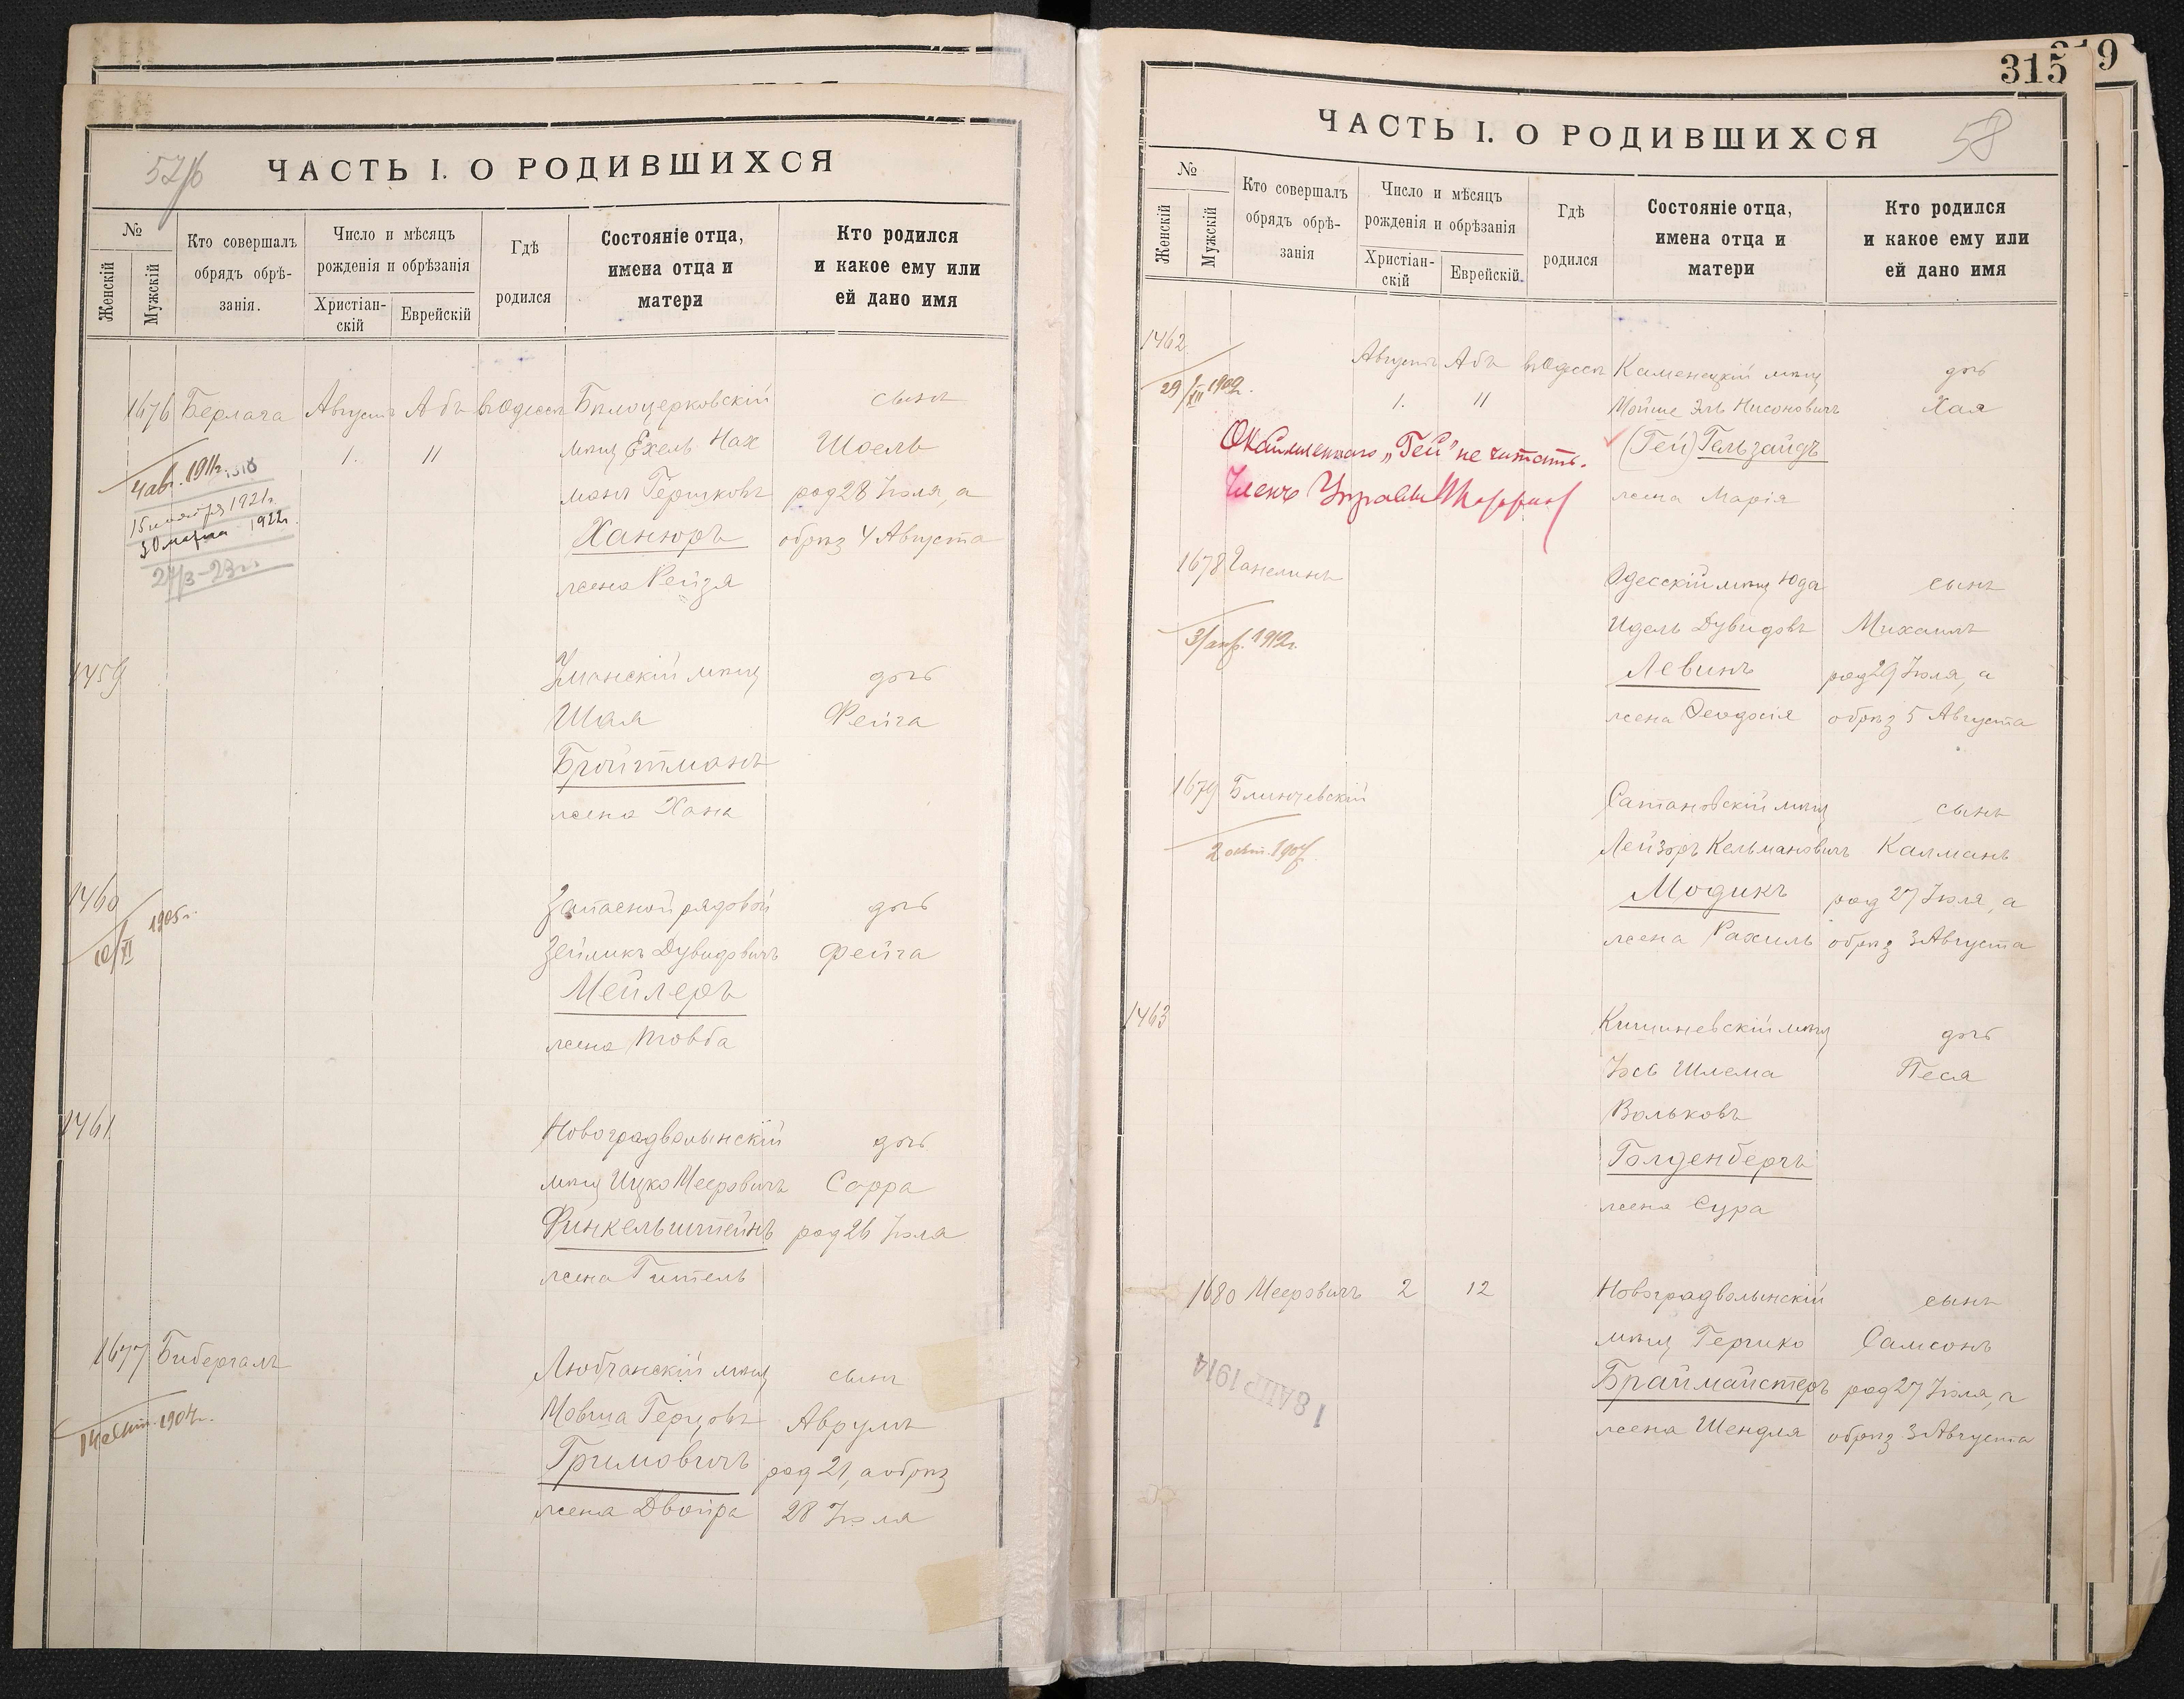 57/б
ЧАСТЬ I. О РОДИВШИХСЯ
№
Женскій
Мужскій
Кто совершалъ
обрядъ обрѣ-
занія.
Число и мѣсяцъ
рожденія и обрѣзанія
Христіан-
скій
Еврейскій
Гдѣ
родился
Состояніе отца,
имена отца и
матери
Кто родился
и какое ему или
ей дано имя
1676 Берлага Августъ Абъ въ Одессѣ Бѣлоцерковскій сынъ
4 авг. 1911г. 1. 11 мѣщ Ехель Нах Шоель
манъ Гершковъ род 28 Іюля, а
15 1921г. Ханюръ обрѣз 4 Августа
30 марта 1922г. жена Рейзя
27/3-23г.
1459 Уманскій мѣщ дочь
Шая Фейга
Бройтманъ
жена Хана
1460 Запасной рядовой дочь
10/XI 1905г. Зейликъ Дувидовичъ Фейга
Мейлеръ
жена Товба
1461 Новоградволынскій дочь
мѣщ Ицко Мееровичъ Сарра
Финкельштейнъ род 26 Іюля
жена Гитель
1677 Бибергалъ Любчанскій мѣщ сынъ
14 окт. 1904г. Мовша Герцовъ Аврумъ
Гримовичъ род 21, а обрѣз
жена Двойра 28 Іюля
319
315
ЧАСТЬ I. О РОДИВШИХСЯ
58
№
Женскій
Мужскій
Кто совершалъ
обрядъ обрѣ-
занія
Число и мѣсяцъ
рожденія и обрѣзанія
Христіан-
скій
Еврейскій.
Гдѣ
родился
Состояніе отца,
имена отца и
матери
Кто родился
и какое ему или
ей дано имя
1462 Августъ Абъ въ Одессѣ Каменецкій мѣщ дочь
29/XII 1909г. 1. 11 Мойше Эль Нисоновичъ Хая
Окаймленнаго „Гей" не читать. (Гей) Гельзайдъ
Членъ Управы жена Марія
1678 Ганелинъ Одесскій мѣщ Юда сынъ
31 1912г. Идель Дувидовъ Михаилъ
Левинъ род 29 Іюля, а
жена Феодосія обрѣз 5 Августа
1679 Блинчевскій Сатановскій мѣщ сынъ
2 окт. 1907. Лейзоръ Кельмановичъ Калманъ
Модикъ род 27 Іюля, а
жена Рахиль обрѣз 3 Августа
1463 Кишиневскій мѣщ дочь
Іось Шлема Песя
Вольковъ
Голденбергъ
жена Сура
1680 Мееровичъ 2 12 Новоградволынскій сынъ
мѣщ Гершко Самсонъ
18 АПР 1914 Браймайстеръ род 27 Іюля, а
жена Шендля обрѣз 3 Августа